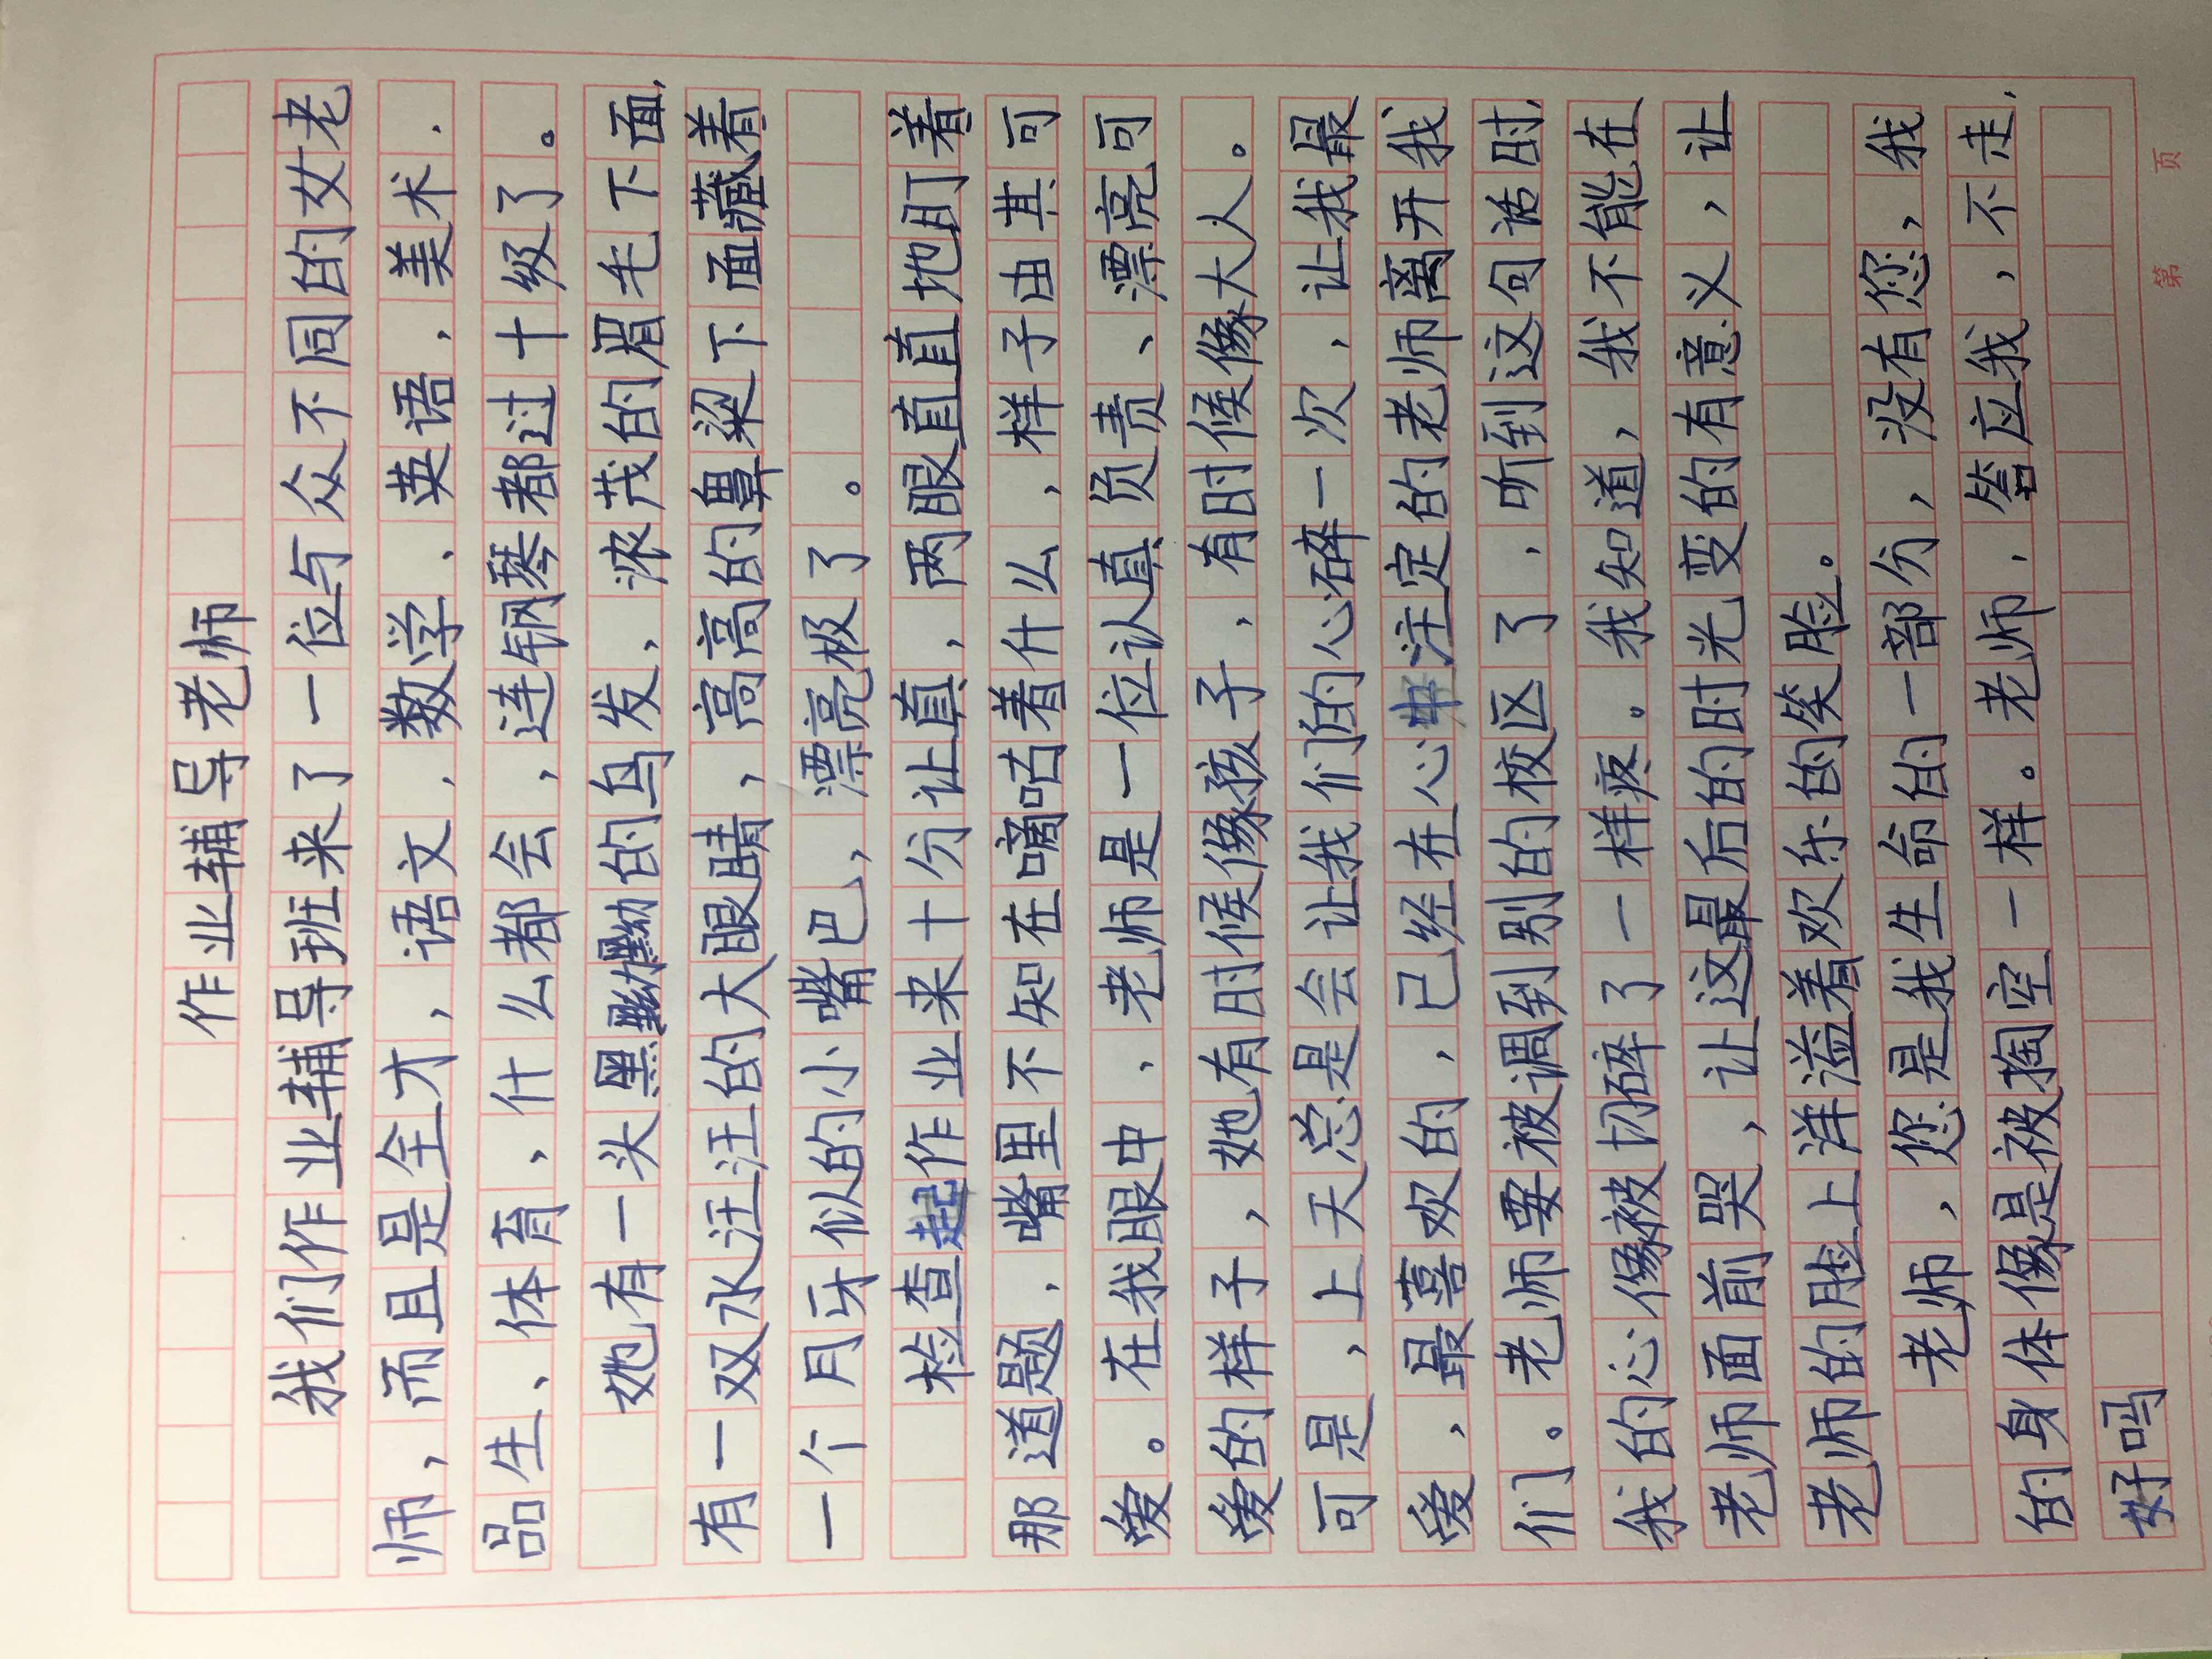 作业辅导老师
我们作业辅导班来了一位与众不同的女老
师，而且是全才，语文、数学、英语、美术、
品生、体育，什么都会，连钢琴都过十级了。
她有一头黑黝黝的乌发，浓茂的眉毛下面，
有一双水汪汪的大眼睛，高高的鼻梁下面藏着
一个月牙似的小嘴巴，漂亮极了。
检查起作业来十分让真，两眼直直地盯着
那道题，嘴里不知在嘀咕着什么，样子由其可
爱。在我眼中，老师是一位认真负责、漂亮可
爱的样子，她有时候像孩子，有时候像大人。
可是，上天总是会让我们的心碎一次，让我最
爱，最喜欢的，已经在心中注定的老师离开我
们。老师要被调到别的校区了，听到这句话时，
我的心像被切碎了一样疼。我知道，我不能在
老师面前哭，让这最后的时光变的有意义，让
老师的脸上洋溢着欢乐的笑脸。
老师，您是我生命的一部分，没有您，我
的身体像是被掏空一样。老师，答应我，不走，
好吗
第 页